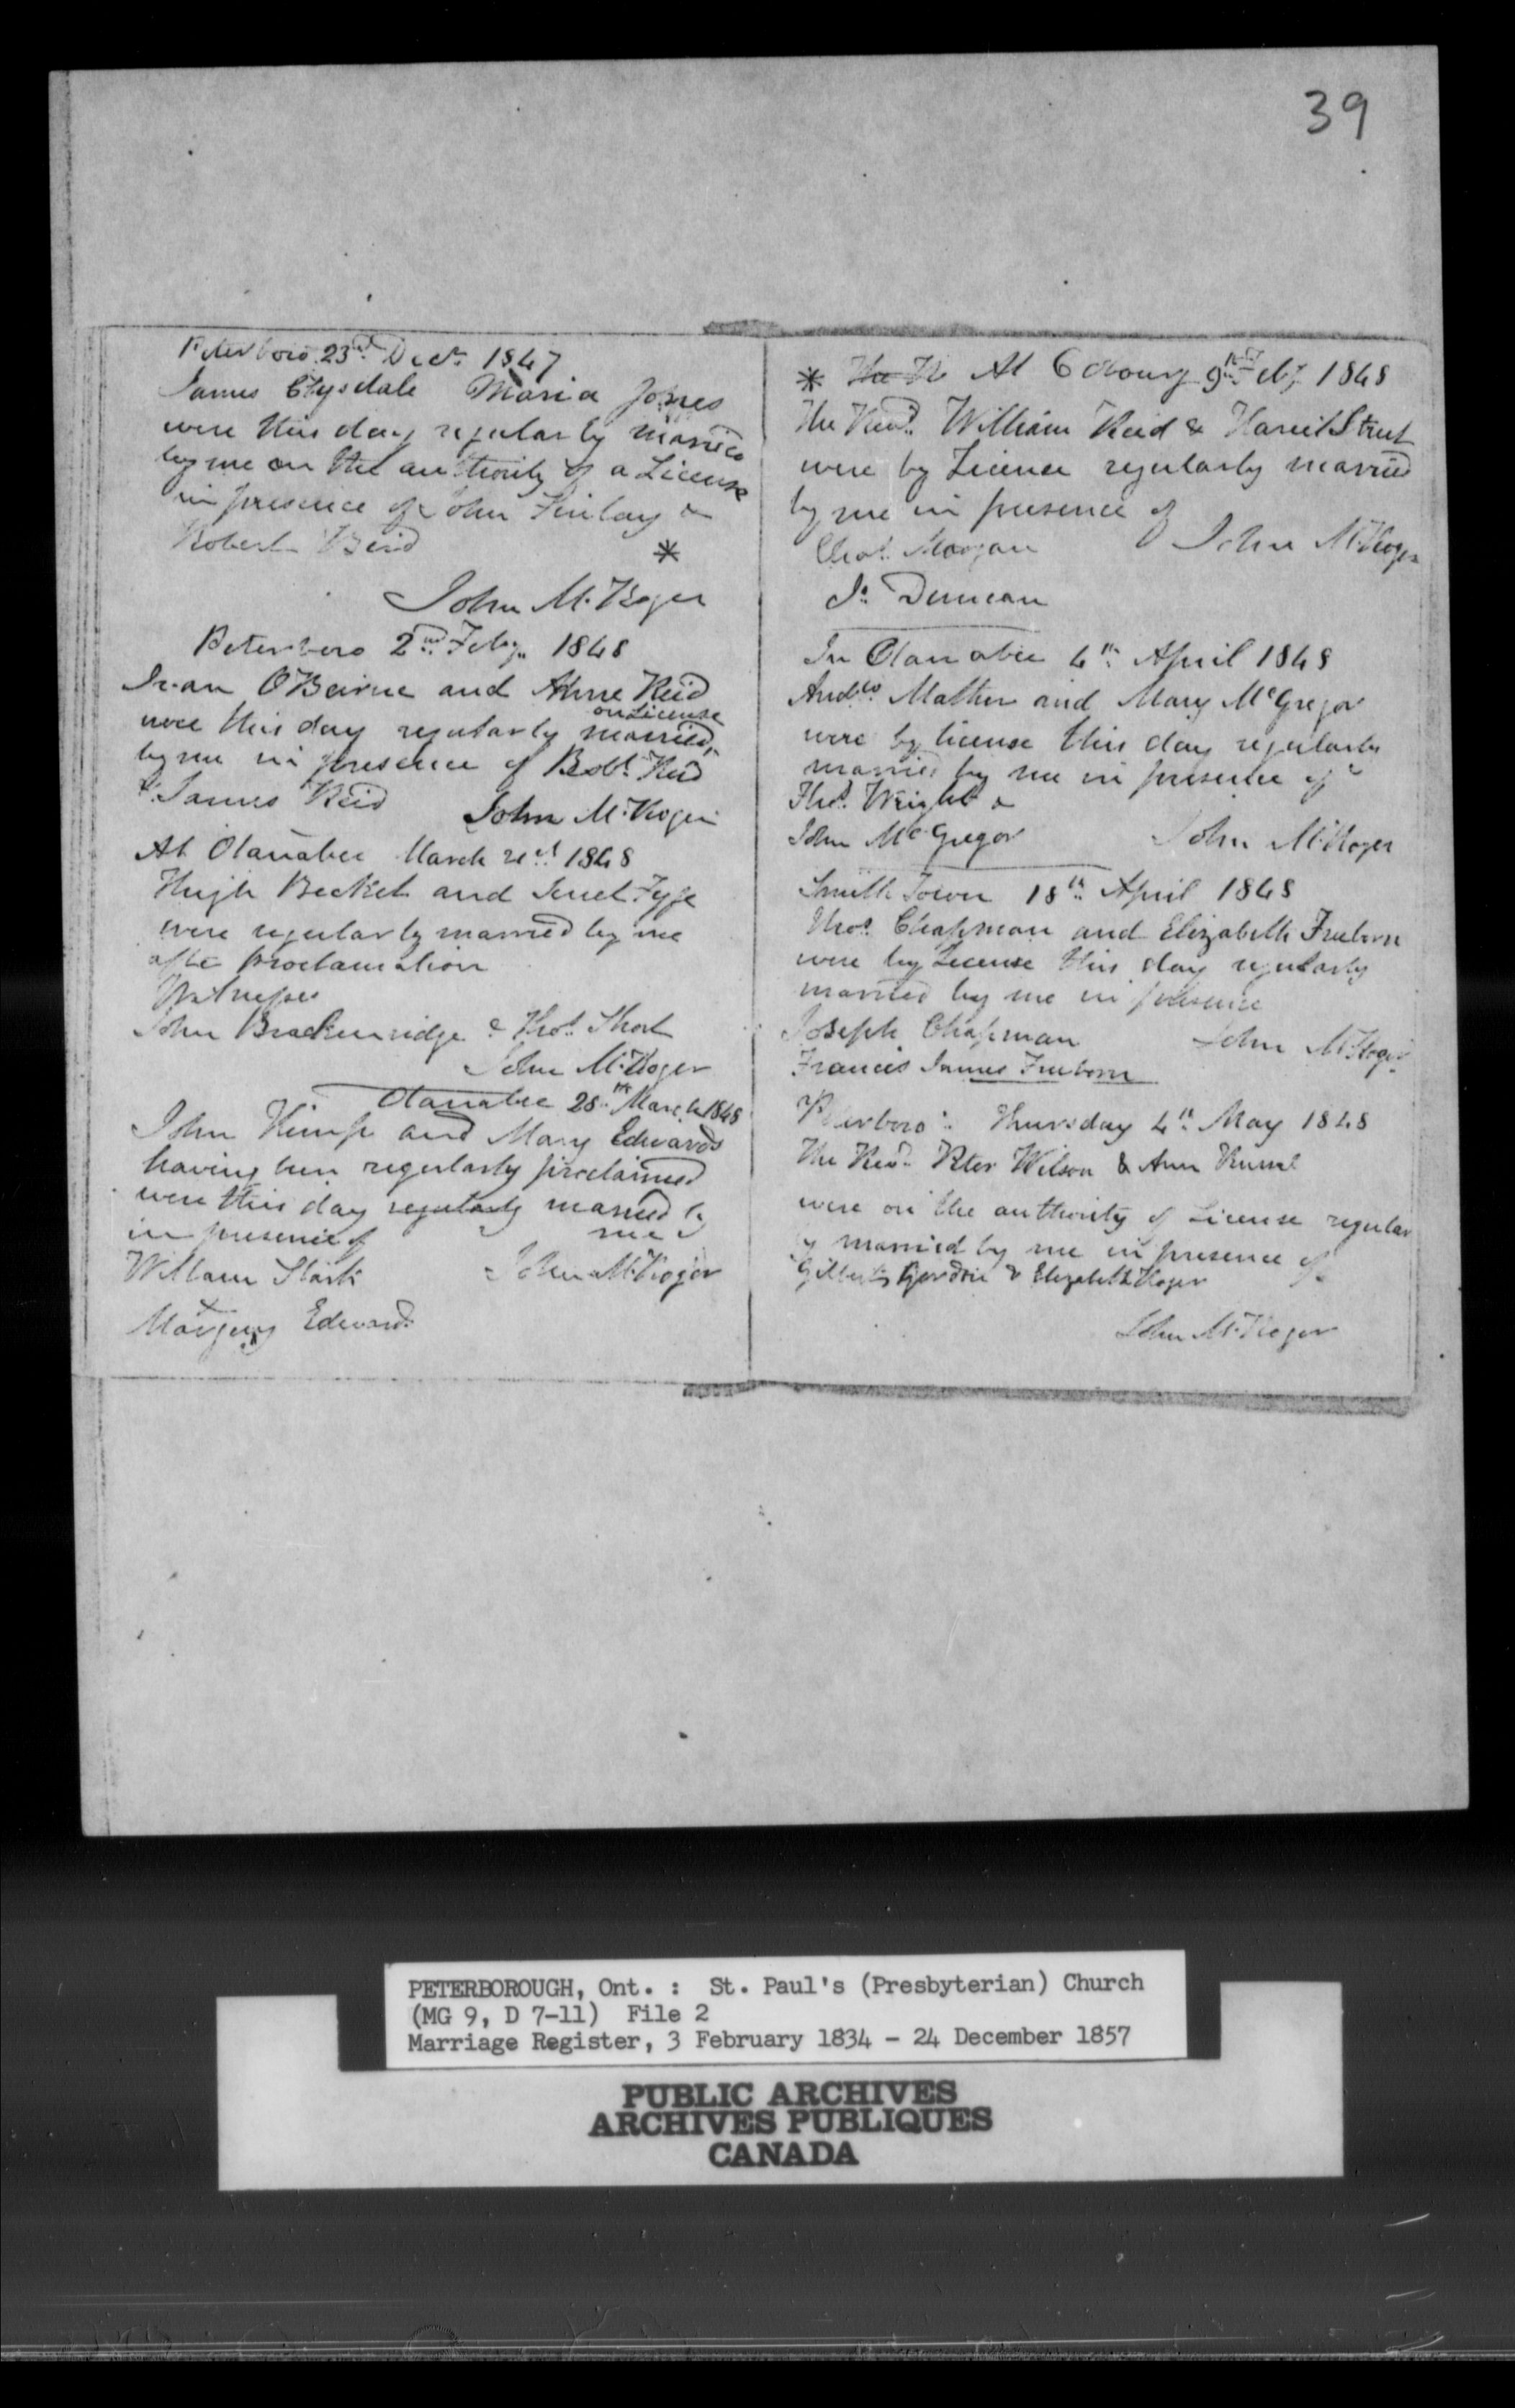 39
Peterboro 23rd Decr 1847
James Clysdale Maria Jones
were this day regularly married
by me on the authority of a License
in presence of John Finlay &
Robert Bird
*
John M. Roger
Peterboro 2nd Feby. 1848
O'Beirne and Anne Reid
on License
were this day regularly married,
by me in presence of Robt. Reid
& James Reid John M. Roger
At Otanabee March 21st 1848
Hugh Becket and Jenet Fyfe
were regularly married by me
after Proclamation
Witnesses
John Brackenridge & Thos. Short
John M. Roger
Otanabee 28th March 1848
John Kemp and Mary Edwards
having been regularly proclaimed
were this day regularly married by
in presence of me
William Stark John M. Roger
Margery Edwards
* At Cobourg 9th Feby 1848
The Revd. William Reid & Harriet Street
were by License regularly married
by me in presence of
Chas. Morgan John M. Roger
Js. Duncan
In Otanabee 4th April 1848
Andw. Mather and Mary McGregor
were by license this day regularly
married by me in presence of
Thos. Wright &
John McGregor John M. Roger
Smith Town 18th April 1848
Thos. Chapman and Elizabeth Freeborn
were by License this day regularly
married by me in presence
Joseph Chapman John M. Roger
Francis James Freeborn
Peterboro: Thursday 4th May 1848
The Revd. Peter Wilson & Ann
were on the authority of License regular
y married by me in presence of
Gilbert & Elizabeth Roger
John M. Roger
PETERBOROUGH, Ont. : St. Paul's (Presbyterian) Church
(MG 9, D 7-11) File 2
Marriage Register, 3 February 1834 - 24 December 1857
PUBLIC ARCHIVES
ARCHIVES PUBLIQUES
CANADA